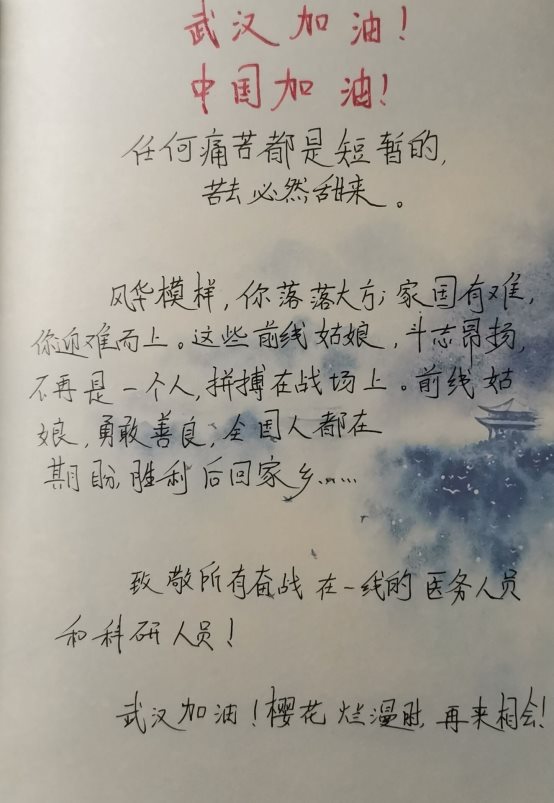 武汉加油!
中国加油!
任何痛苦都是短暂的,
苦去必然甜来。
风华模样,你落落大方;家国有难,
你迎难而上。这些前线姑娘,斗志昂扬,
不再是一个人,拼搏在战场上。前线姑
娘,勇敢善良,全国人都在
期盼,胜利后回家乡……
致敬所有奋战在一线的医务人员
和科研人员!
武汉加油!樱花烂漫时,再来相会!